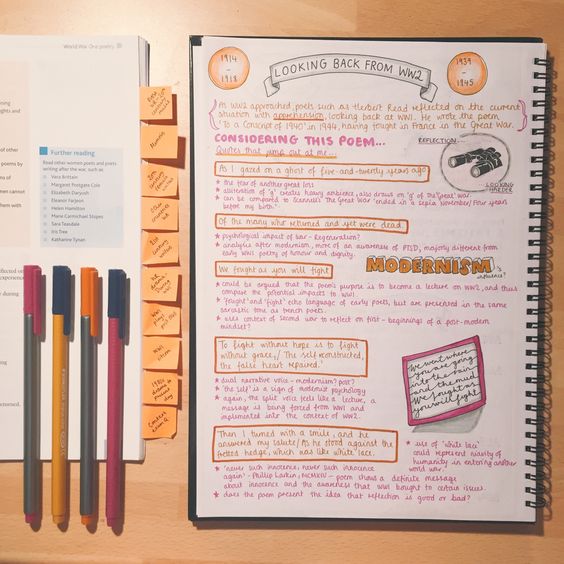 World War One poetry
Further reading
Read other women poets and poets
writing after the war, such as:
Vera Brittain
Margaret Postgate Cole
Elizabeth Daryush
Eleanor Farjeon
Helen Hamilton
Marie Carmichael Stopes
Sara Teasdale
Iris Tree
Katharine Tynan
1914
-
1918
LOOKING BACK FROM WW2
1939
-
1945
As WW2 approached, poets such as Herbert Read reflected on the current
situation with apprehension, looking back at WW1. He wrote the poem
'To a Conscript of 1940' in 1944, having fought in France in the Great War.
CONSIDERING THIS POEM...
Quotes that jump out at me...
REFLECTION...
LOOKING
HARDER
As I gazed on a ghost of five-and-twenty years ago
★ the fear of another great loss
★ alliteration of 'g' creates heavy ambience, also draws on 'g' of the 'great' war.
★ can be compared to Scannell's 'The Great War' 'ended in a sepia November / Four years
before my birth.'
Of the many who returned and yet were dead.
★ psychological impact of war - Regeneration?
★ analysis after modernism, more of an awareness of PTSD, majorly different from
early WW1 poetry of honour and dignity.
MODERNISM's
influence?
We fought as you will fight
★ could be argued that the poem's purpose is to become a lecture on WW2, and thus
compare the potential impacts to WW1.
★ 'fought' and 'fight' echo language of early poets, but are presented in the same
sarcastic tone as trench poets.
★ uses context of second war to reflect on first - beginnings of a post-modern
mindset?
To fight without hope is to fight
without grace, / The self reconstructed,
the false heart repaired.'
★ dual narrative voice - modernism? post?
★ 'the self' is a sign of modernist psychology
★ again, the split voice feels like a lecture, a
message is being forced from WW1 and
implemented into the context of WW2.
We went where
you are going
into the rain
and the mud
We fought as
you will fight
Then I turned with a smile, and he
answered my salute / As he stood against the
fretted hedge, which was like white lace.
★ 'never such innocence, never such innocence
again' - Phillip Larkin, MCMXIV - poem shows a definite message
about innocence and the awareness that WW1 bought to certain issues.
★ does the poem present the idea that reflection is good or bad?
★ use of 'white lace'
could represent niavity of
humanity in entering another
world war.